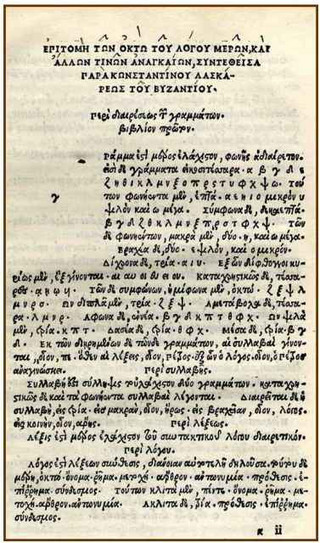 ΕΠΙΤΟΜΗ ΤΩΝ ΟΚΤΩ ΤΟΥ ΛΟΓΟΥ ΜΕΡΩΝ, ΚΑΙ
ΑΛΛΩΝ ΤΙΝΩΝ ΑΝΑΓΚΑΙΩΝ, ΣΥΝΤΕΘΕΙΣΑ
ΠΑΡΑ ΚΩΝΣΤΑΝΤΙΝΟΥ ΛΑΣΚΑ-
ΡΕΩΣ ΤΟΥ ΒΥΖΑΝΤΙΟΥ.
Περὶ διαιρέσεως τῶν γραμμάτων.
βιβλίον πρῶτον.
γ ράμμα ἐστὶ μέρος ἐλάχιστον, φωνῆς ἀδιαίρετον.
εἰσὶ δὲ γράμματα εἰκοσιτέσσαρα. α β γ δ ε
ζ η θ ι κ λ μ ν ξ ο π ρ σ τ υ φ χ ψ ω. Τού
των φωνήεντα μὲν, ἑπτά. α ε η ι ο μικρὸν υ
ψιλὸν καὶ ω μέγα. Σύμφωνα δὲ, δεκαεπτά.
β γ δ ζ θ κ λ μ ν ξ π ρ σ τ φ χ ψ. Τῶν
δὲ φωνηέντων, μακρὰ μὲν, δύο. η, καὶ ω μέγα.
Βραχέα δὲ, δύο. ε ψιλὸν, καὶ ο μικρόν.
Δίχρονα δὲ, τρία. α ι υ. Ἐξ ὧν δίφθογγοι κυ-
ρίως μὲν, ἓξ γίνονται. αι αυ ει ευ οι ου. Καταχρηστικῶς δὲ, τέσσα-
ρες. ᾳ ῃ ῳ υι. Τῶν δὲ συμφώνων, ἡμίφωνα μὲν, ὀκτώ. ζ ξ ψ λ
μ ν ρ σ. Ὧν διπλᾶ μὲν, τρία. ζ ξ ψ. Ἀμετάβολα δὲ, τέσσα-
ρα. λ μ ν ρ. Ἄφωνα δὲ, ἐννέα. β γ δ κ π τ θ φ χ. Ὧν ψιλὰ
μὲν, τρία. κ π τ. Δασέα δὲ, τρία. θ φ χ. Μέσα δὲ, τρία. β γ
δ. Ἐκ τῶν διῃρημένων δὲ τῶνδε γραμμάτων, αἱ συλλαβαὶ γίνον-
ται, οἷον,
ἀναγινώσκει. Περὶ συλλαβῆς.
Συλλαβή ἐστι σύλληψις τοὐλάχιστον δύο γραμμάτων. καταχρη-
στικῶς δὲ καὶ τὰ φωνήεντα συλλαβαὶ λέγονται. Διαιρεῖται δὲ ἡ
συλλαβὴ, εἰς τρία. εἰς μακρὰν, οἷον, ἥρως. εἰς βραχεῖαν, οἷον, λόγος.
εἰς κοινὴν, οἷον, ἄρης. Περὶ λέξεως.
Λέξις ἐστὶ μέρος ἐλάχιστον τοῦ συντακτικοῦ λόγου διαιρετικόν.
Περὶ λόγου.
Λόγος ἐστὶ λέξεων σύνθεσις, διάνοιαν αὐτοτελῆ δηλοῦσα. Τούτου δὲ
μέρη, ὀκτώ. ὄνομα. ῥῆμα. μετοχή. ἄρθρον. ἀντωνυμία. πρόθεσις. ἐ-
πίρρημα. σύνδεσμος. Τούτων κλιτὰ μὲν, πέντε. ὄνομα. ῥῆμα. με-
τοχή. ἄρθρον. ἀντωνυμία. Ἄκλιτα δὲ, τρία. πρόθεσις. ἐπίρρημα.
σύνδεσμος.
a ii